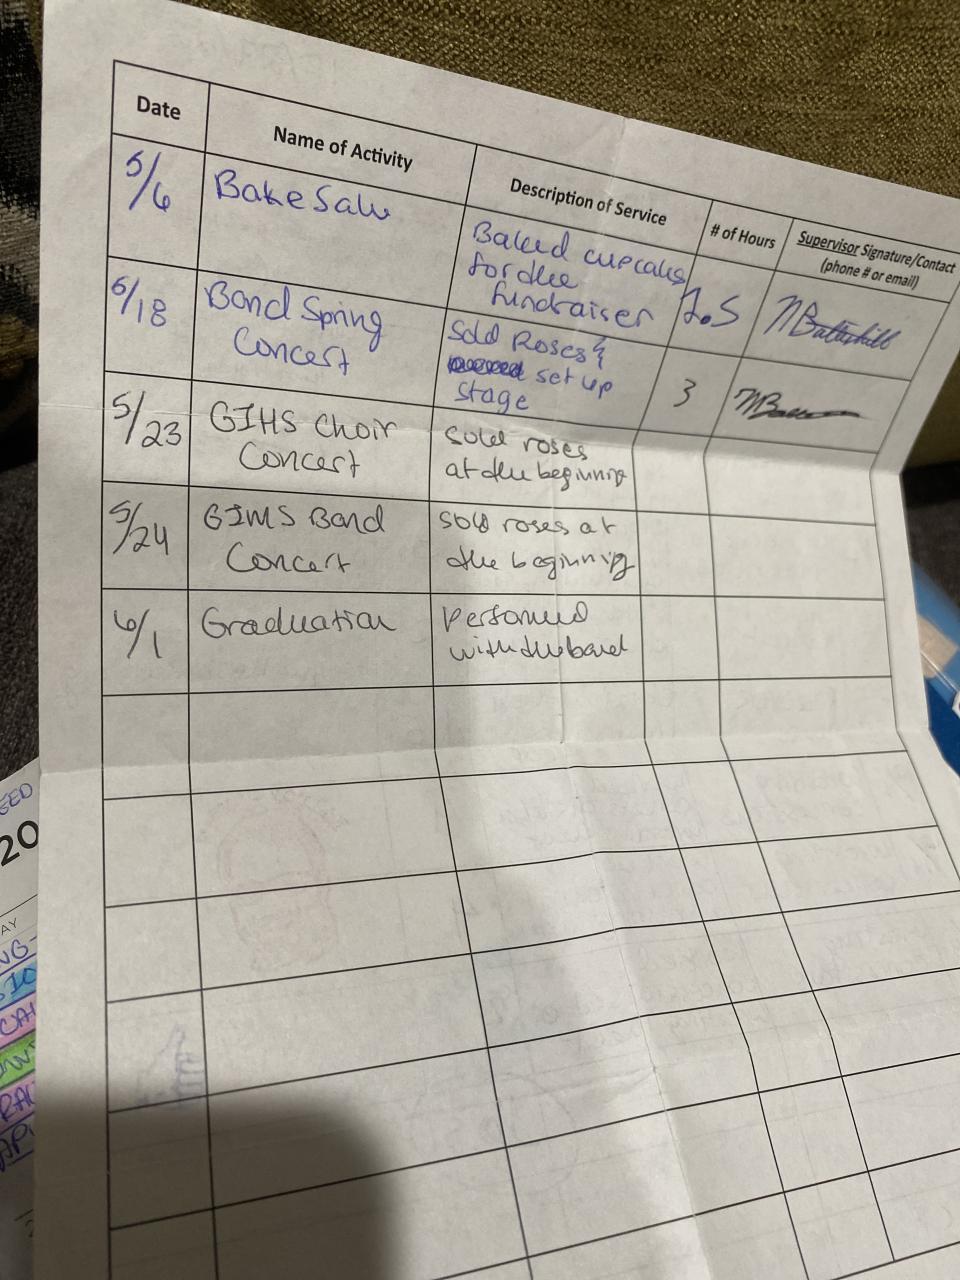 Date
Name of Activity
Description of Service
# of Hours
Supervisor Signature/Contact
(phone # or email)
5/6
Bake Sale
Baked cupcakes
for the
fundraiser
5/18
Band Spring
Concert
Sold Roses &
set up
stage
3
5/23
GIHS Choir
Concert
sold roses
at the beginning
5/24
GIMS Band
Concert
sold roses at
the beginning
6/1
Graduation
Performed
with the band
20
AY